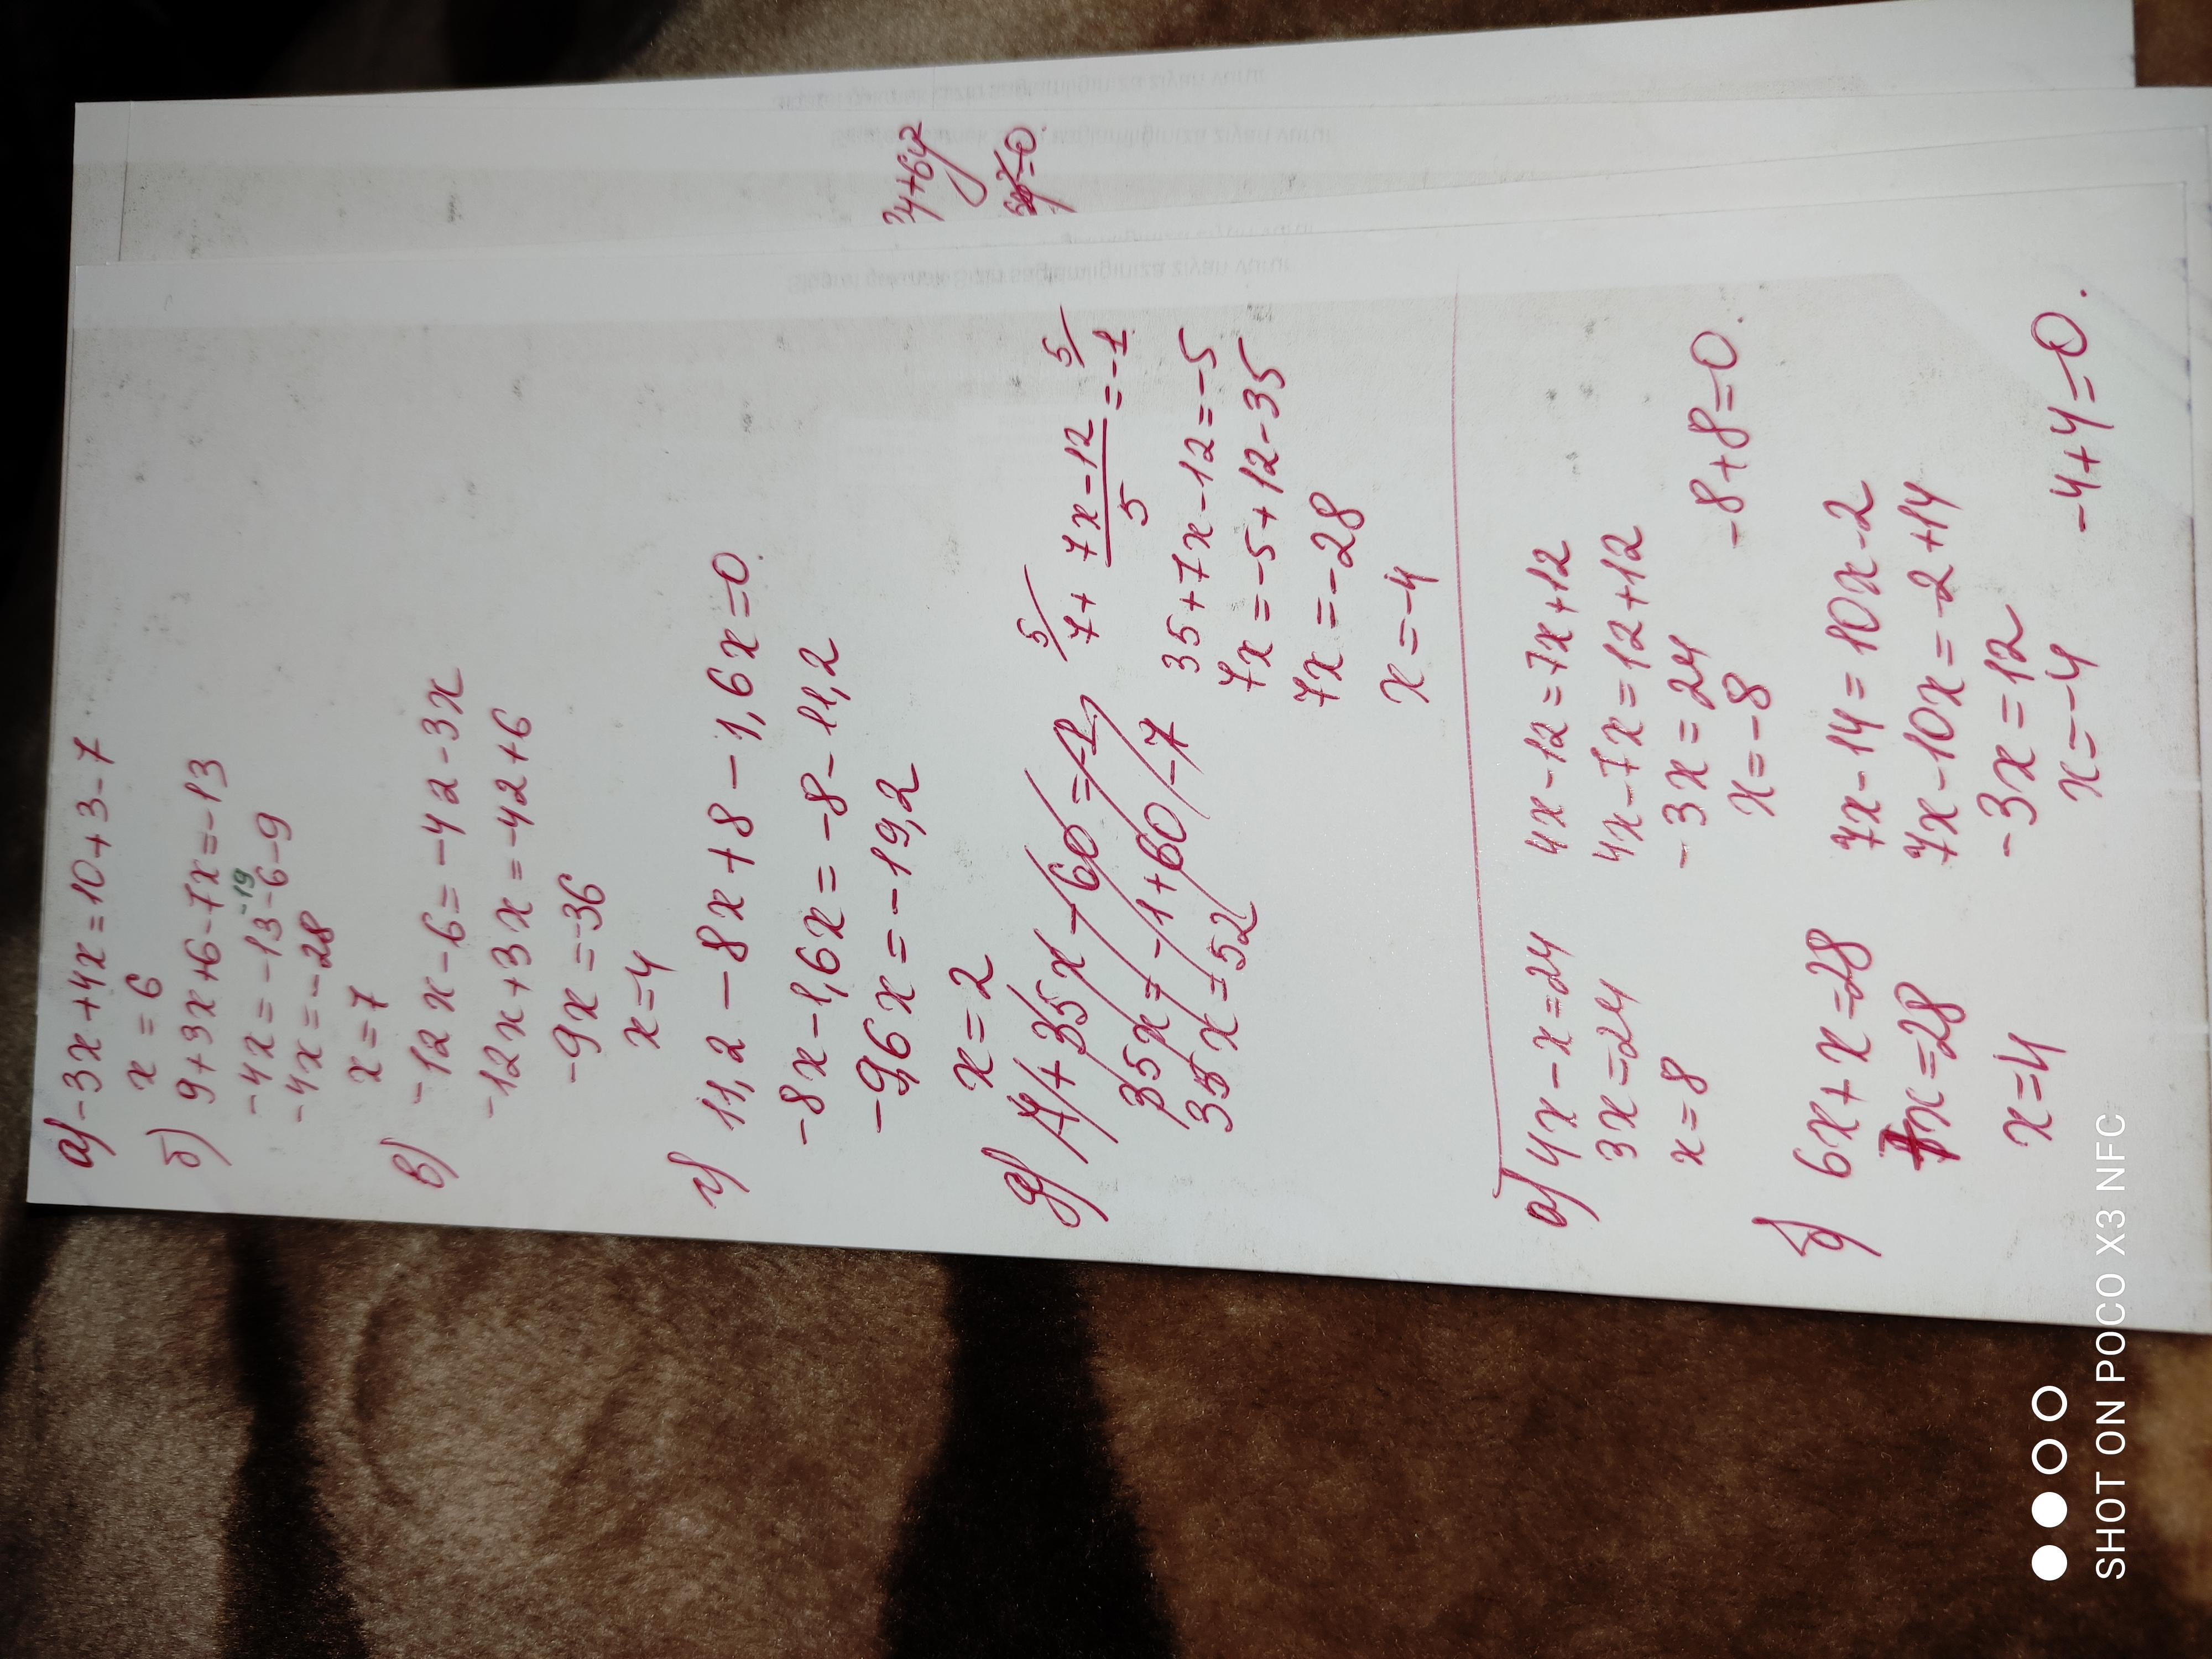 а) -3x+4x=10+3-7
x=6
б) 9+3x+6-7x=-13
-19
-4x=-13-6-9
-4x=-28
x=7
в) -12x-6=-42-3x
-12x+3x=-42+6
-9x=-36
x=4
г) 11,2-8x+8-1,6x=0.
-8x-1,6x=-8-11,2
-9,6x=-19,2
x=2
д)
35x=-1+60-7
35x=52
5/ 5/
7+ 7x-12 =-1
5
35+7x-12=-5
7x=-5+12-35
7x=-28
x=-4
а) 4x-x=24 4x-12=7x+12
3x=24 4x-7x=12+12
x=8 -3x=24
x=-8 -8+8=0.
б) 6x+x=28 7x-14=10x-2
7x=28 7x-10x=-2+14
x=4 -3x=12
x=-4 -4+4=0.
SHOT ON POCO X3 NFC